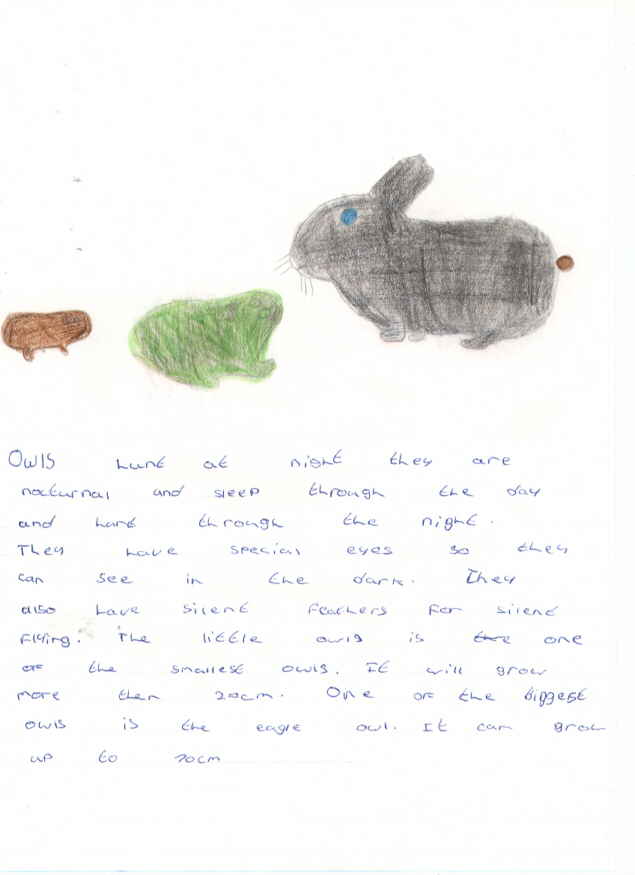 Owls hunt at night they are
nocturnal and sleep through the day
and hunt through the night.
They have special eyes so they
can see in the dark. They
also have silent feathers for silent
flying. The little owls is the one
of the smallest owls. It will grow
more then 20cm. One of the biggest
owls is the eagle owl. It can grow
up to 70cm